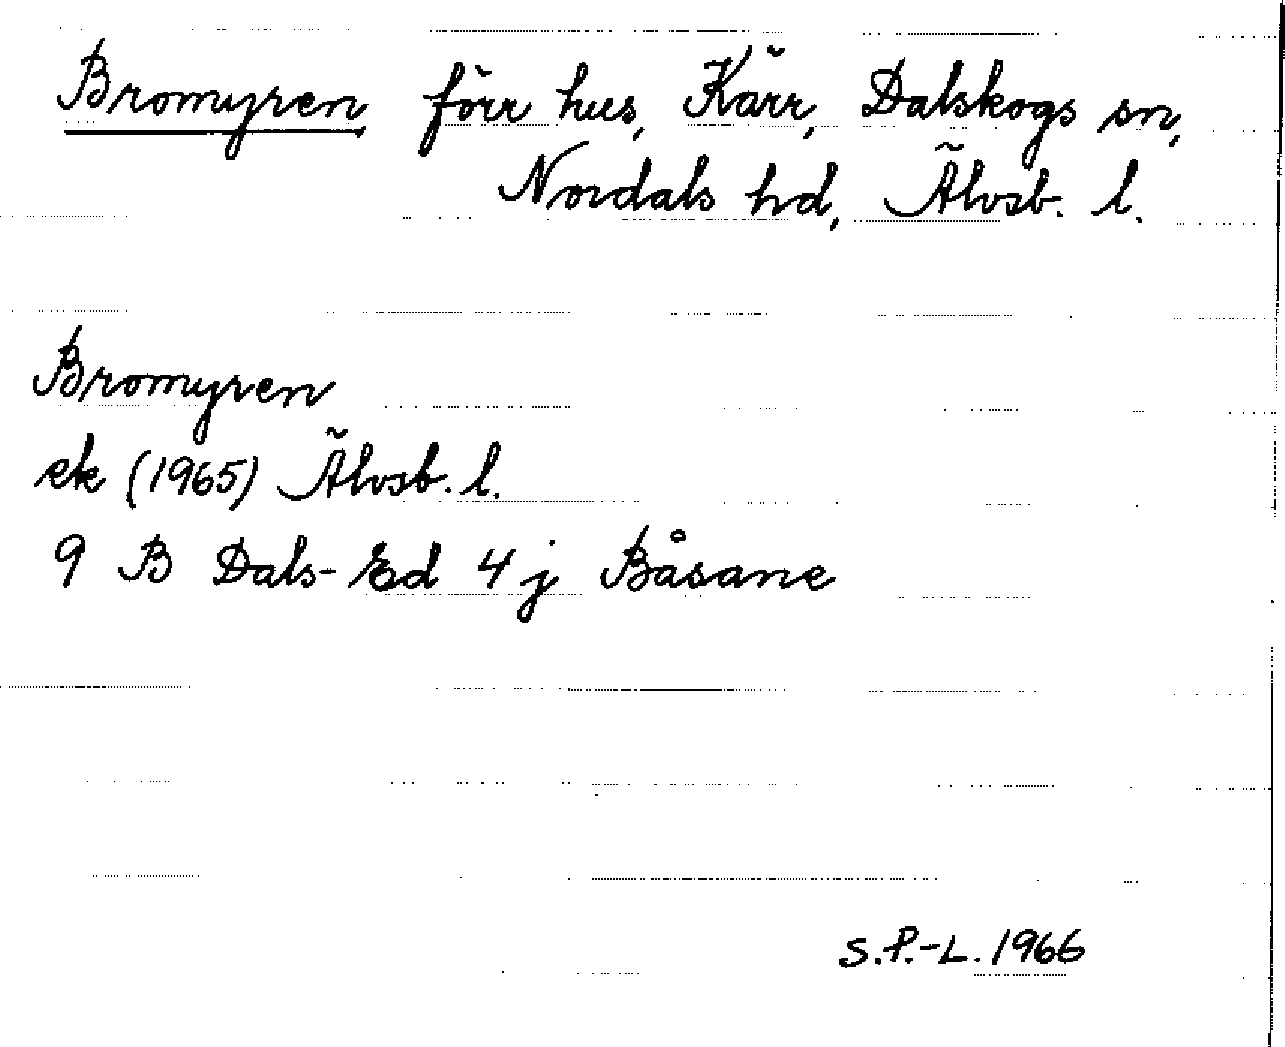 Bromyren förr hus, Kärr, Dalskogs sn,
Nordals hd, Älvsb. l.
Bromyren
ek (1965) Älvsb. l.
9 B Dals-Ed 4 j Båsane
S.P.-L. 1966